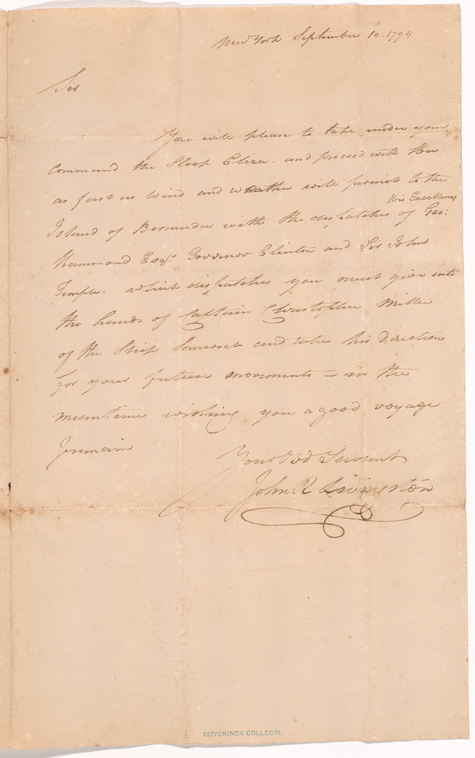 New York September 10. 1794
Sir
You will please to take under your
Command the Sloop Eliza. and proceed with Her
as fast as wind and weather will permit to the
Island of Bermuda with the dispatches of His Excellency Geo:
Hammond Esqr. Governor Clinton and Sir John
Temple. which dispatches you must give into
the hands of Captain Christopher Miller
of the Ship Somerset and take his directions
for your future movements – in the
meantime wishing you a good voyage
I remain
Your Obd Servant
John R Livingston
DUYCKINCK COLLEC'N.